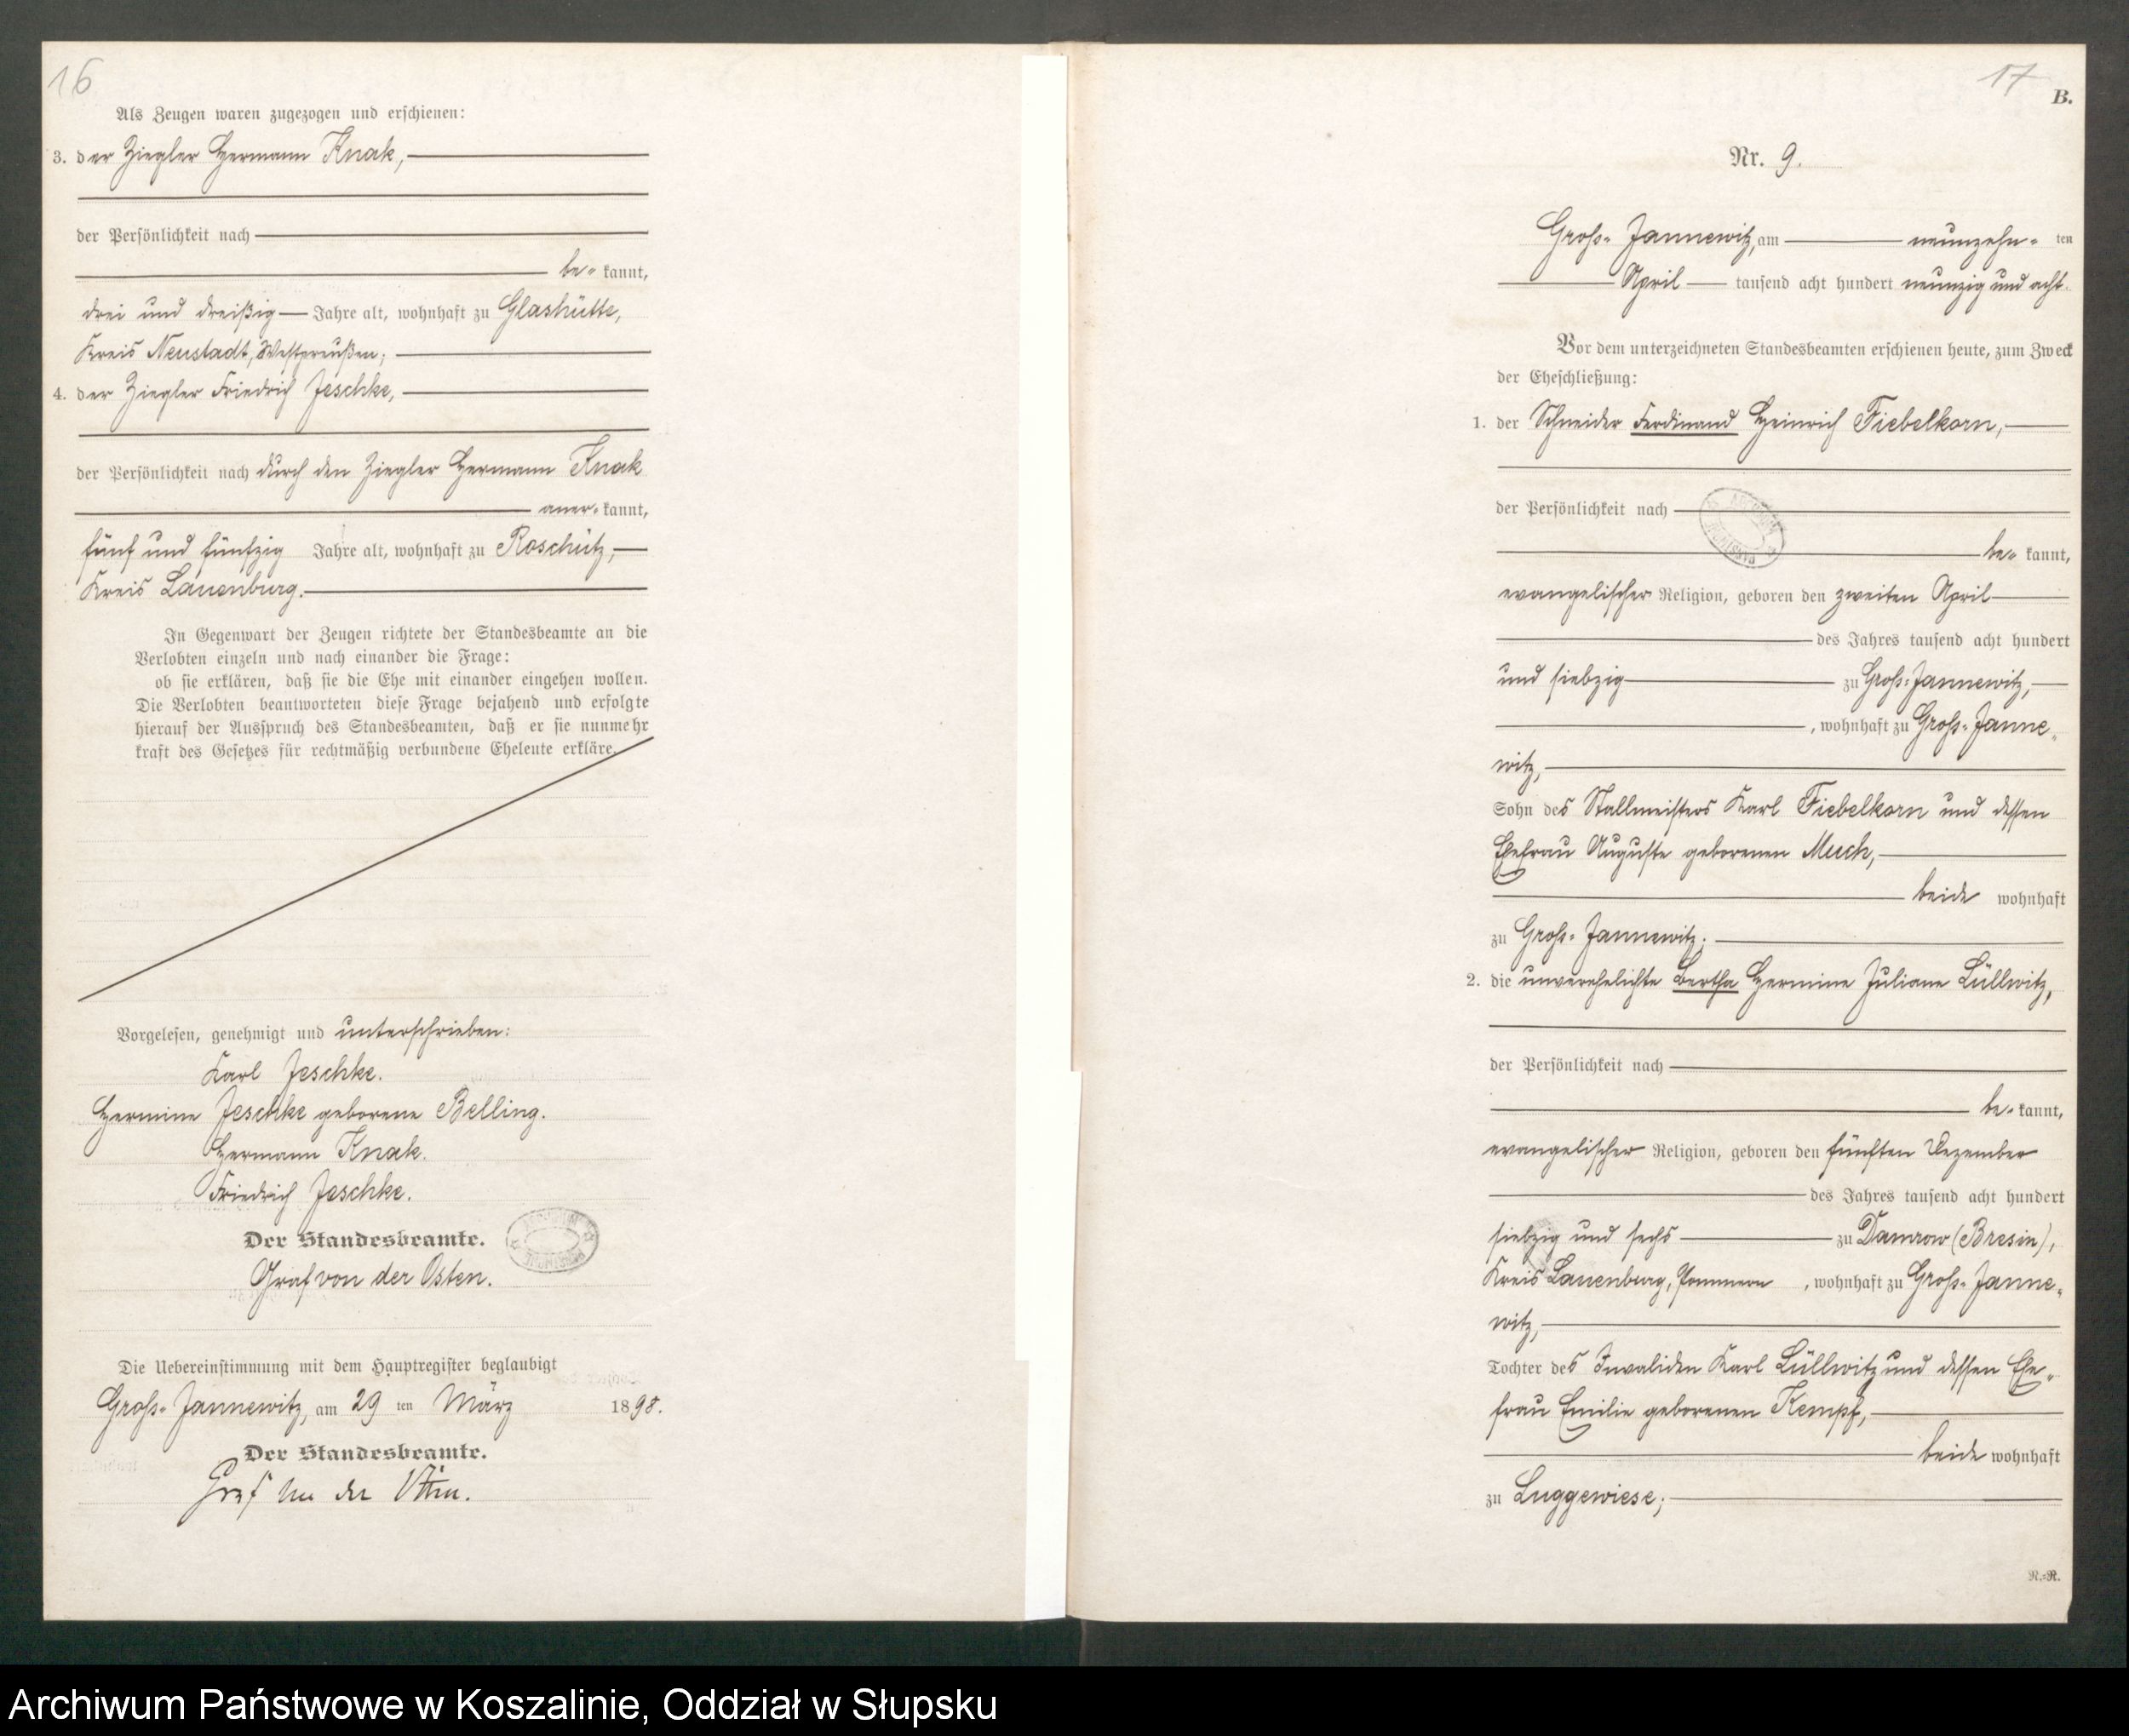 16
Als Zeugen waren zugezogen und erschienen:
3. der Ziegler Hermann Knak,
der Persönlichkeit nach
be- kannt,
drei und dreißig Jahre alt, wohnhaft zu Glashütte,
Kreis Neustadt, Westpreußen;
4. der Ziegler Friedrich Jeschke,
der Persönlichkeit nach durch den Ziegler Hermann Knak
aner- kannt,
fünf und fünfzig Jahre alt, wohnhaft zu Roschütz,
Kreis Lauenburg.
In Gegenwart der Zeugen richtete der Standesbeamte an die
Verlobten einzeln und nach einander die Frage:
ob sie erklären, daß sie die Ehe mit einander eingehen wollen.
Die Verlobten beantworteten diese Frage bejahend und erfolgte
hierauf der Ausspruch des Standesbeamten, daß er sie nunmehr
kraft des Gesetzes für rechtmäßig verbundene Eheleute erkläre.
Vorgelesen, genehmigt und unterschrieben:
Karl Jeschke.
Hermine Jeschke geborene Belling.
Hermann Knak.
Friedrich Jeschke.
Der Standesbeamte.
Graf von der Osten.
Die Uebereinstimmung mit dem Hauptregister beglaubigt
Groß-Jannewitz, am 29 ten März 1898.
Der Standesbeamte.
Graf von der Osten.
17
B.
Nr. 9.
Groß-Jannewitz, am neunzehn- ten
April tausend acht hundert neunzig und acht.
Vor dem unterzeichneten Standesbeamten erschienen heute, zum Zweck
der Eheschließung:
1. der Schneider Ferdinand Heinrich Fiebelkorn,
der Persönlichkeit nach
be- kannt,
evangelischer Religion, geboren den zweiten April
des Jahres tausend acht hundert
und siebzig zu Groß-Jannewitz,
, wohnhaft zu Groß-Janne-
witz,
Sohn des Stallmeisters Karl Fiebelkorn und dessen
Ehefrau Auguste geborenen Much,
beide wohnhaft
zu Groß-Jannewitz;
2. die unverehelichte Bertha Hermine Juliane Lüllwitz,
der Persönlichkeit nach
be- kannt,
evangelischer Religion, geboren den fünften Dezember
des Jahres tausend acht hundert
siebzig und sechs zu Damrow (Bresin),
Kreis Lauenburg, Pommern , wohnhaft zu Groß-Janne-
witz,
Tochter des Invaliden Karl Lüllwitz und dessen Ehe-
frau Emilie geborenen Kempf,
beide wohnhaft
zu Luggewiese;
R.=R.
Archiwum Państwowe w Koszalinie, Oddział w Słupsku